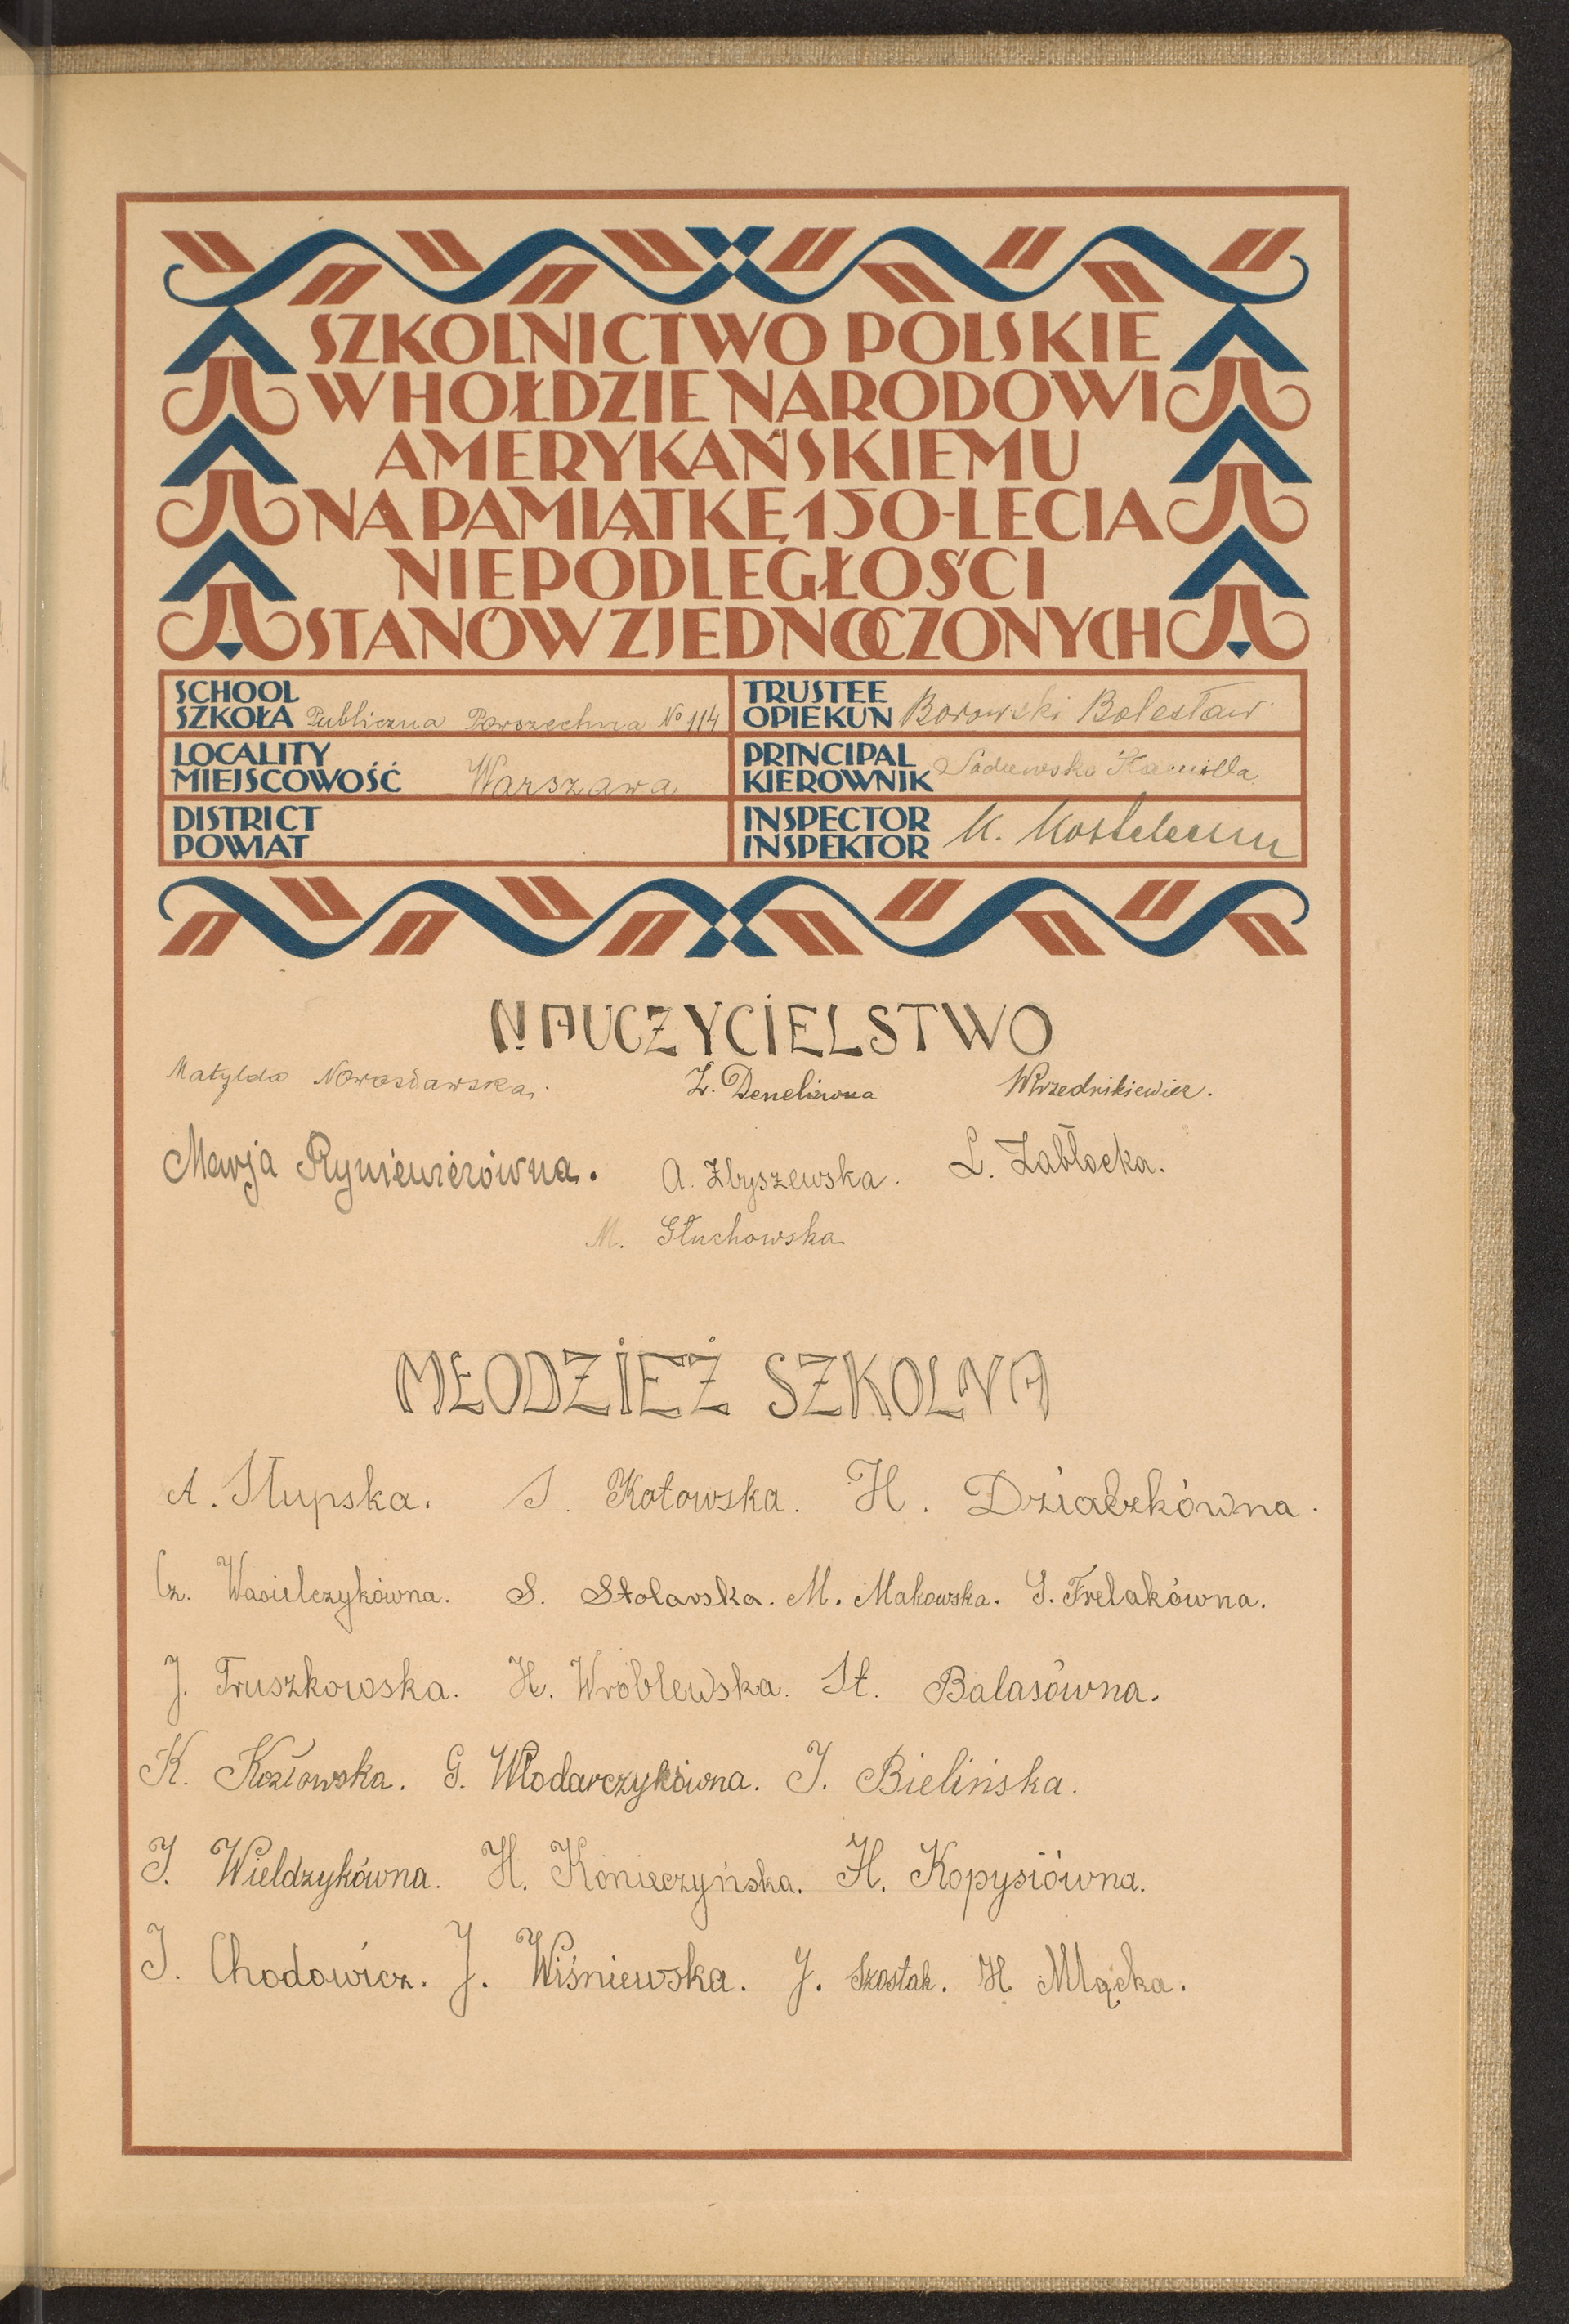 SZKOLNICTWO POLSKIE
W HOŁDZIE NARODOWI
AMERYKAŃSKIEMU
NA PAMIĄTKĘ 150-LECIA
NIEPODLEGŁOŚCI
STANÓW ZJEDNOCZONYCH
SCHOOL
SZKOŁA Publiczna Powszechna № 114
TRUSTEE
OPIEKUN Borowski Bolesław
LOCALITY
MIEJSCOWOŚĆ Warszawa
PRINCIPAL
KIEROWNIK Kamilla
DISTRICT
POWIAT
INSPECTOR
INSPEKTOR K.
NAUCZYCIELSTWO
Matylda Nowosławska. Z. Denelówna W. Wrzednikiewicz.
Marja Ryniewiczówna. A. Zbyszewska. L. Zabłocka.
M. Głuchowska
MŁODZIEŻ SZKOLNA
A. Słupska. S. Kotowska. H. Działkówna.
Cz. Wasielczykówna. S. Stolarska. M. Makowska. S. Frelakówna.
J. Truszkowska. H. Wróblewska. St. Balasówna.
K. Kozłowska. G. Włodarczykówna. J. Bielińska.
J. Wieldzykówna. H. Konieczyńska. H. Kopysiówna.
J. Chodowicz. J. Wiśniewska. J. Szostak. H Mlącka.